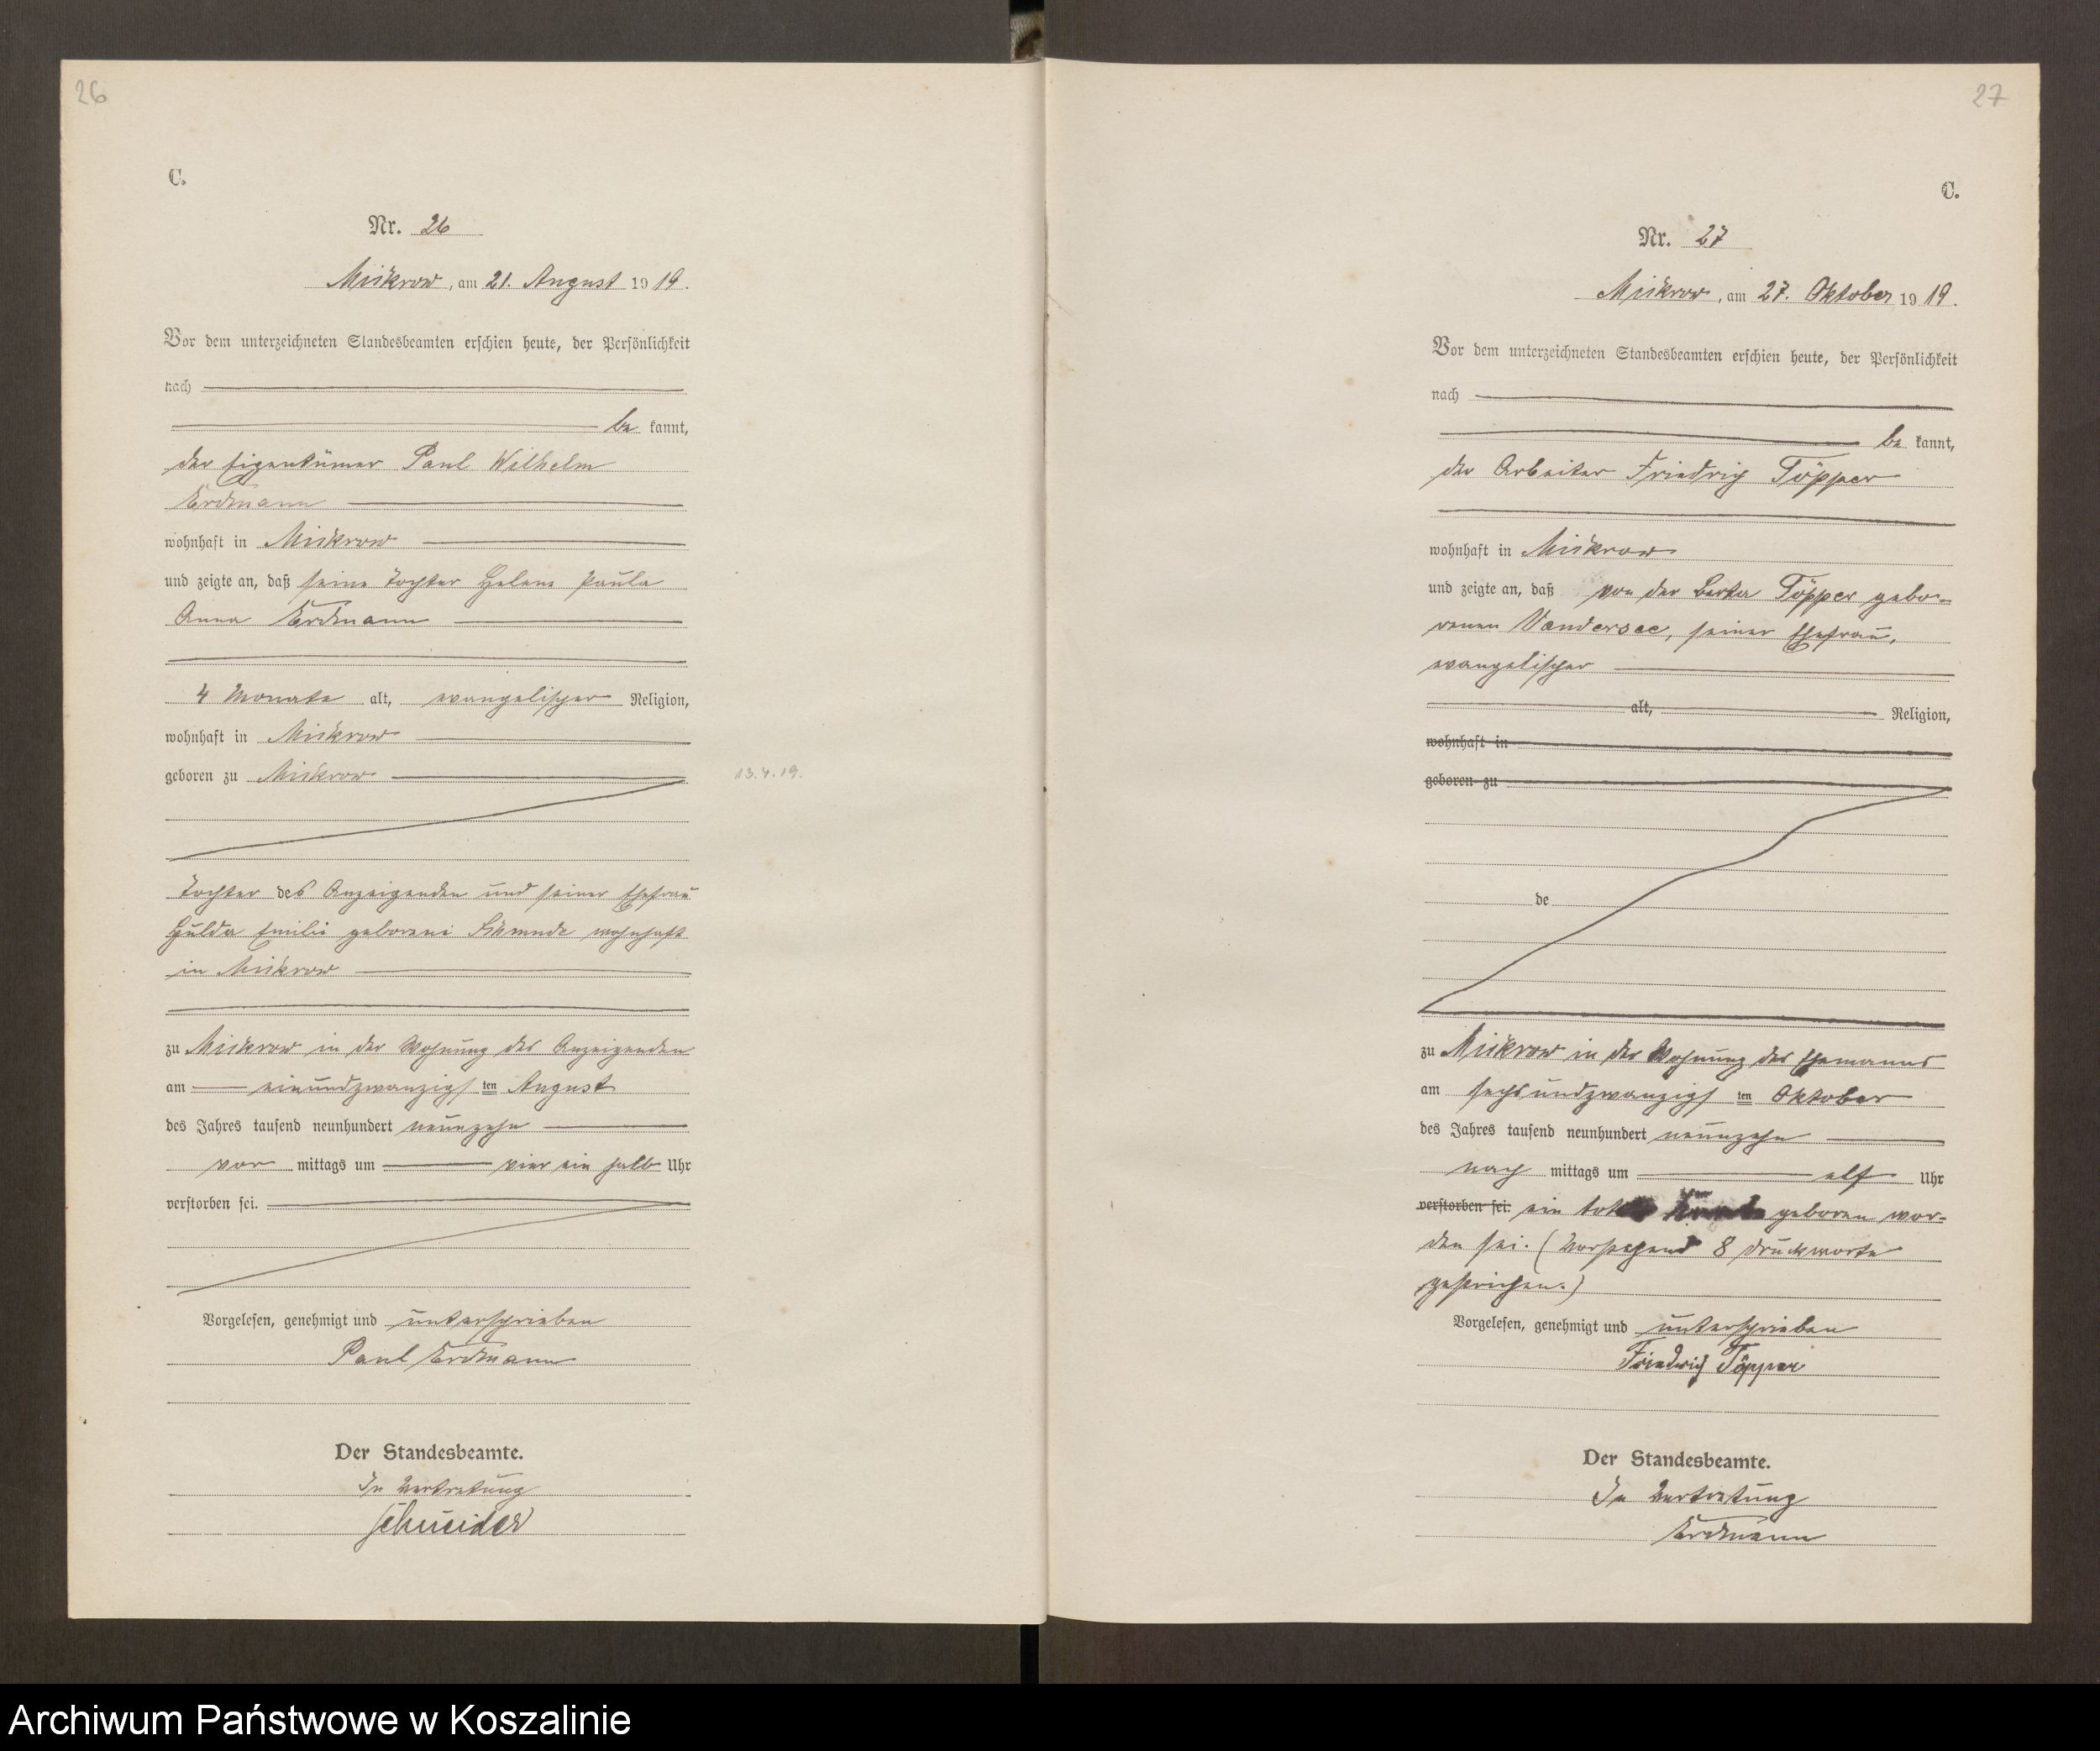 26
C.
Nr. 26
Mickrow, am 21. August 1919.
Vor dem unterzeichneten Standesbeamten erschien heute, der Persönlichkeit
nach
be kannt,
der Eigentümer Paul Wilhelm
Erdmann
wohnhaft in Mickrow
und zeigte an, daß seine Tochter Helene Paula
Anna Erdmann
4 Monate alt, evangelischer Religion,
wohnhaft in Mickrow
geboren zu Mickrow
13.4.19.
Tochter des Anzeigenden und seiner Ehefrau
Hulda Emilie geborene wohnhaft
in Mickrow
zu Mickrow in der Wohnung des Anzeigenden
am einundzwanzigsten August
des Jahres tausend neunhundert neunzehn
vor mittags um vier ein halb Uhr
verstorben sei.
Vorgelesen, genehmigt und unterschrieben
Paul Erdmann
Der Standesbeamte.
In Vertretung
Schneider
27
C.
Nr. 27
Mickrow, am 27. Oktober 1919.
Vor dem unterzeichneten Standesbeamten erschien heute, der Persönlichkeit
nach
be kannt,
der Arbeiter Friedrich Töpper
wohnhaft in Mickrow
und zeigte an, daß von der Berta Töpper gebo-
renen Vandersee, seiner Ehefrau,
evangelischer
alt, Religion,
wohnhaft in
geboren zu
de
zu Mickrow in der Wohnung des Ehemannes
am sechsundzwanzigsten Oktober
des Jahres tausend neunhundert neunzehn
nach mittags um elf Uhr
verstorben sei. ein geboren wor-
den sei. (Vorstehend 8 Druckworte
gestrichen.)
Vorgelesen, genehmigt und unterschrieben
Friedrich Töpper
Der Standesbeamte.
In Vertretung
Erdmann
Archiwum Państwowe w Koszalinie